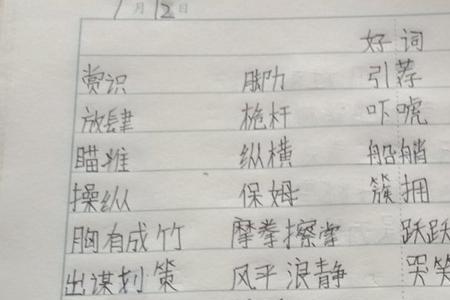 1月12日
好词
赏识 脚力 引荐
放肆 桅杆 吓唬
瞄准 纵横 船艄
操纵 保姆 簇拥
胸有成竹 摩拳擦掌 跃跃
出谋划策 风平浪静 哭笑